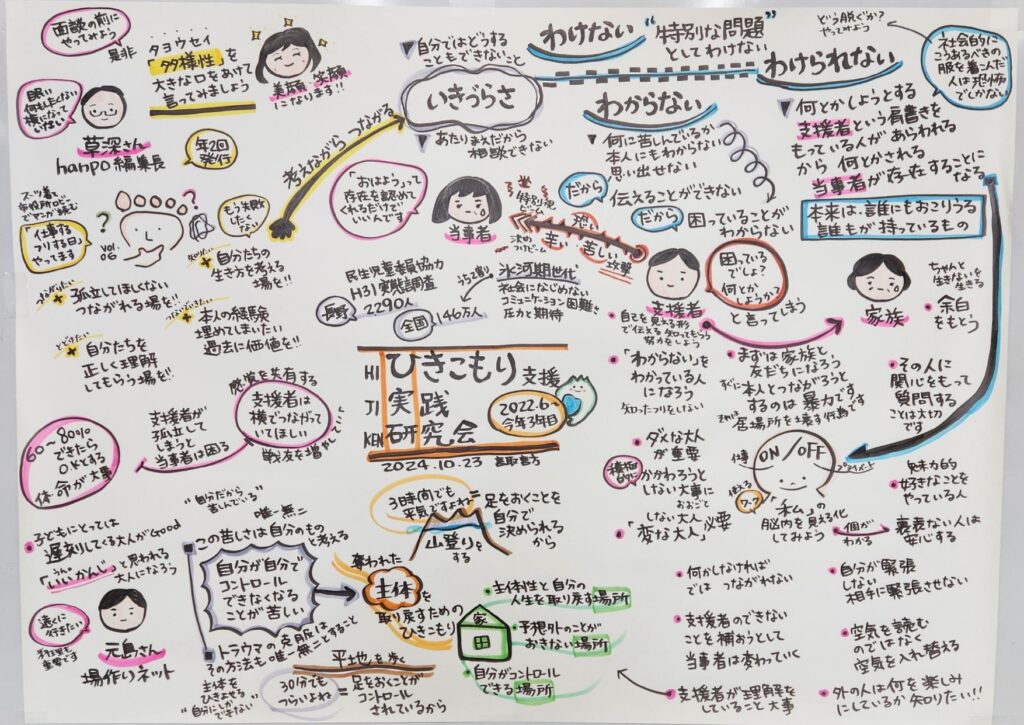 面談の前に
やってみよう
是非
タヨウセイ
「多様性」を
大きな口をあけて
言ってみましょう
美顔 笑顔
になります!!
眠い
何もしたくない
横になって
いたい
草深さん
hanpo編集長
年2回
発行
スーツ着て
市役所ロビー
でマンガ読む
「仕事する
フリする日」
やってます
vol.
06
もう失敗
したく
ない
考えながら つながる
自分たちの
生き方を考える
場を!!
つながりたい
孤立してほしくない
つながれる場を!!
本人の経験
埋めてしまいたい
過去に価値を!!
とどけたい
自分たちを
正しく理解
してもらう場を!!
▼自分ではどうする
こともできないこと
いきづらさ
▼あたりまえだから
相談できない
わけない
“特別な問題”
としてわけない
わけられない
どう脱ぐか?
やってみよう
社会的に
こうあるべきの
服を着こんだ
人は恐怖
でしかない
わからない
▼何に苦しんでいるか
本人にもわからない
思い出せない
だから
伝えることができない
だから
困っていることが
わからない
▼何とかしようとする
支援者という肩書きを
もっている人があらわれる
から 何とかされる
当事者が存在することに
なる
本来は、誰にもおこりうる
誰もが持っているもの
「おはよう」って
存在を認めて
くれるだけで
いいんです
当事者
恐い
辛い 苦しい
攻撃
支援者
困っている
でしょ?
何とかしようか?
と言ってしまう
家族
ちゃんと
生きないを
生きる
余白
をもとう
民生児童委員協力
H31実態調査
長野
2290人
全国
146万人
うち2割
氷河期世代
社会になじめない
コミュニケーション困難さ
圧力と期待
自己を見える形
で伝える 知ってもらう
努力をしよう
「わからない」を
わかっている人
になろう
知ったフリをしない
まずは家族と
友だちになろう
すぐに本人とつながろうと
するのは暴力です
それは
居場所を壊す行為です
その人に
関心をもって
質問する
ことは大切
です
HI
ひきこもり支援
JI
実践
KEN
研究会
2022.6~
今年3年目
2024.10.23
感覚を共有する
支援者は
横でつながって
いてほしい
戦友を増やしていく
支援者が
孤立して
しまうと
当事者は困る
60~80%
できたら
OKとする
体・命が大事
ダメな大人
が重要
積極
的に
かかわろうと
しない大事に
おおごと
しない大人
「変な大人」必要
ON/OFF
仕事
プライベート
使える
ワーク
「私」の
脳内を見える化
してみよう
個が
わかる
魅力的
好きなことを
やっている人
裏表ない人は
安心する
子どもにとっては
遅刻してくる大人がGood
「いいかんじ」と思われる
大人になろう
元島さん
場作りネット
“自分だから
苦しんでいる”
唯一無二
この苦しさは自分のもの
と考える
自分が自分で
コントロール
できなくなる
ことが苦しい
トラウマの克服は
その方法も唯一無二とすること
主体を
ひきよせる
“自分にしか
できない”
3時間でも
平気ですよね
=足をおくことを
自分で
決められる
から
山登りを
する
奪われた
主体を
取り戻すための
ひきこもり
平地を歩く
30分でも
つらいよね
=足をおくことが
コントロール
されているから
家
主体性と自分の
人生を取り戻す場所
予想外のことが
おきない場所
自分がコントロール
できる場所
何かしなければ
では つながれない
支援者のできない
ことを補おうとして
当事者は変わっていく
支援者が理解を
していること大事
自分が緊張
しない
相手に緊張させない
空気を読む
のではなく
空気を入れ替える
外の人は何を楽しみ
にしているか知りたい!!